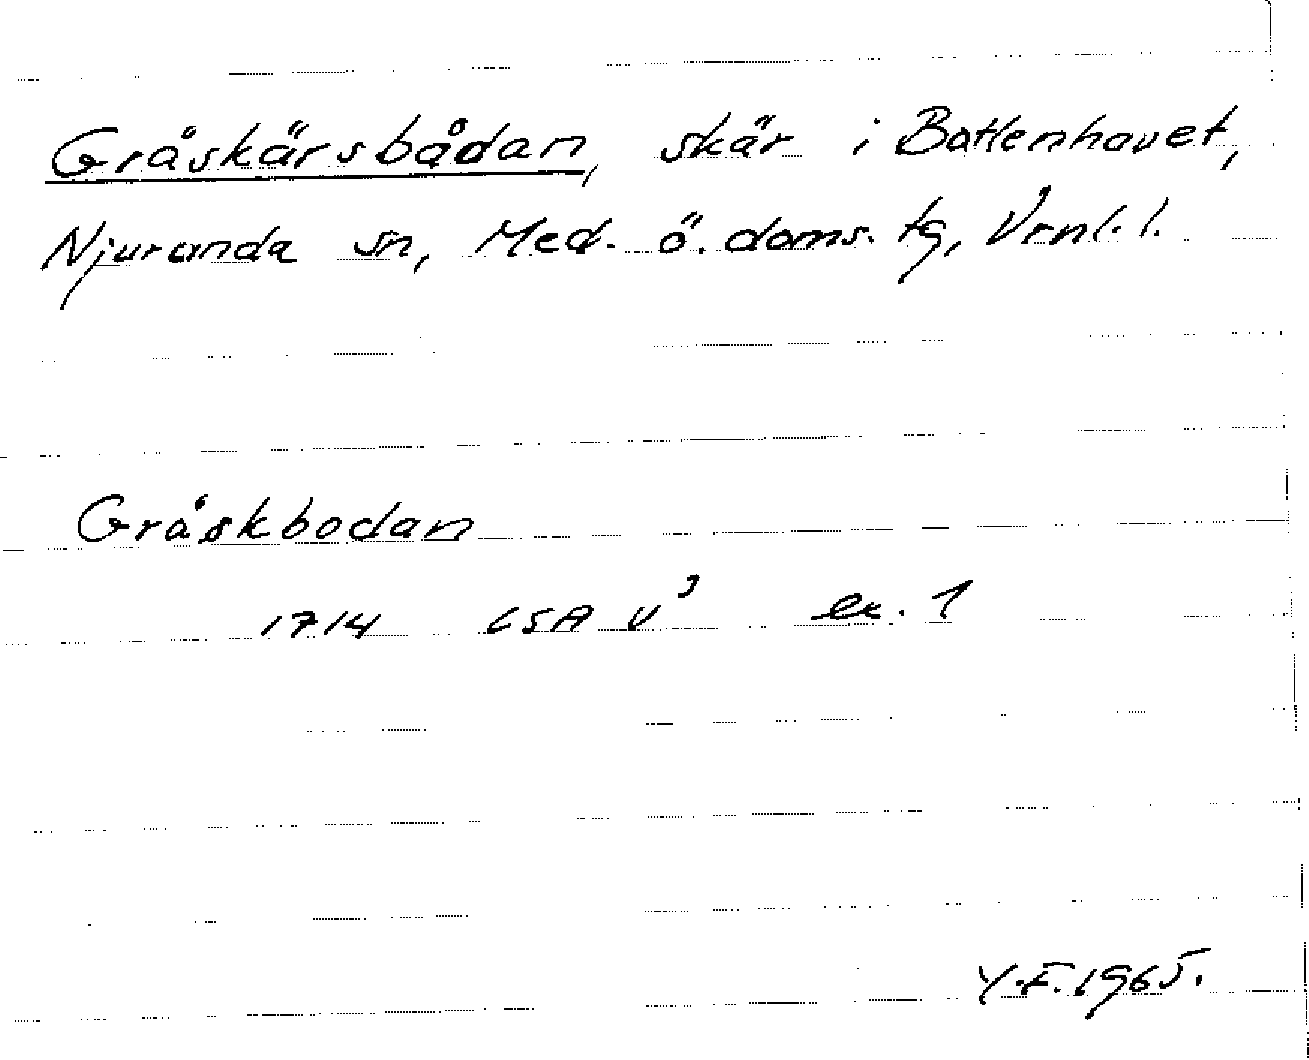 Gråskärsbådan, skär i Bottenhavet,
Njurunda sn, Med. ö. doms. tg, Vrnl. l.
Gråskbodan
1714 LSA V³ ex. 1
Y.F. 1965.